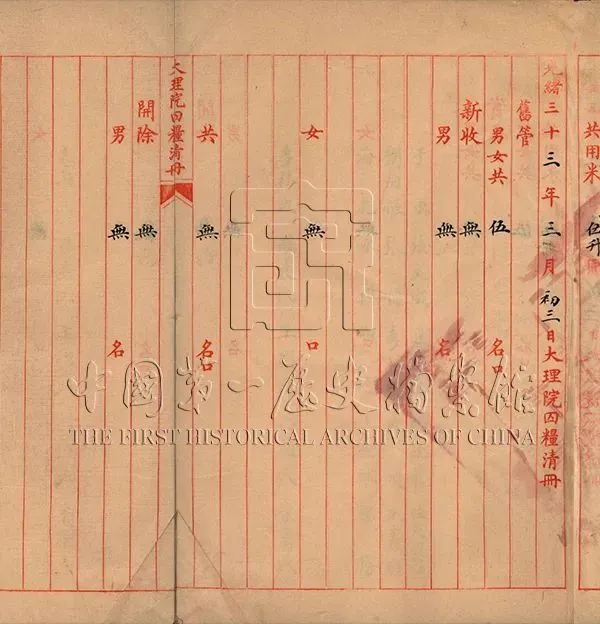 共用米 伍升
光緒三十三年三月初三日大理院囚糧清冊
舊管
男女共 伍 名口
新收 無
男 無 名
女 無 口
共 無 名口
大理院囚糧清冊
開除 無
男 無 名
中國第一歷史檔案館
THE FIRST HISTORICAL ARCHIVES OF CHINA